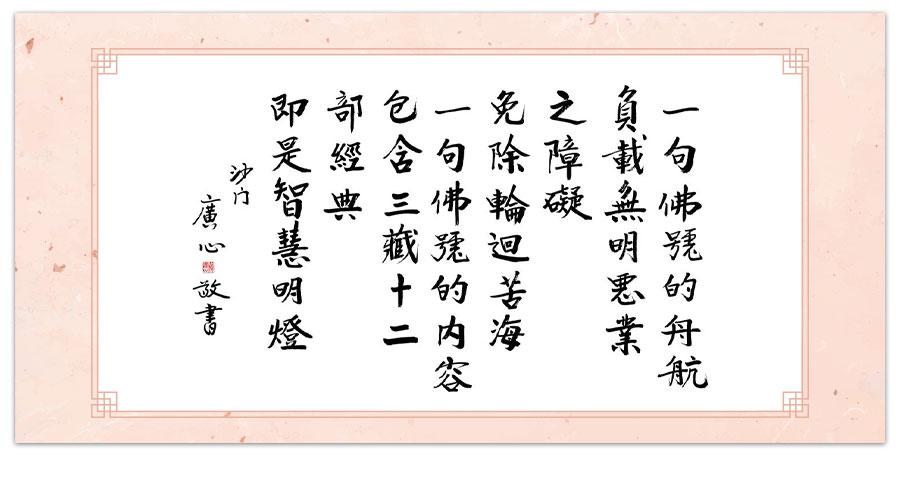 一句佛號的舟航
負載無明悪業
之障礙
免除輪迴苦海
一句佛號的內容
包含三藏十二
部經典
即是智慧明燈
沙门
廣心
敬書